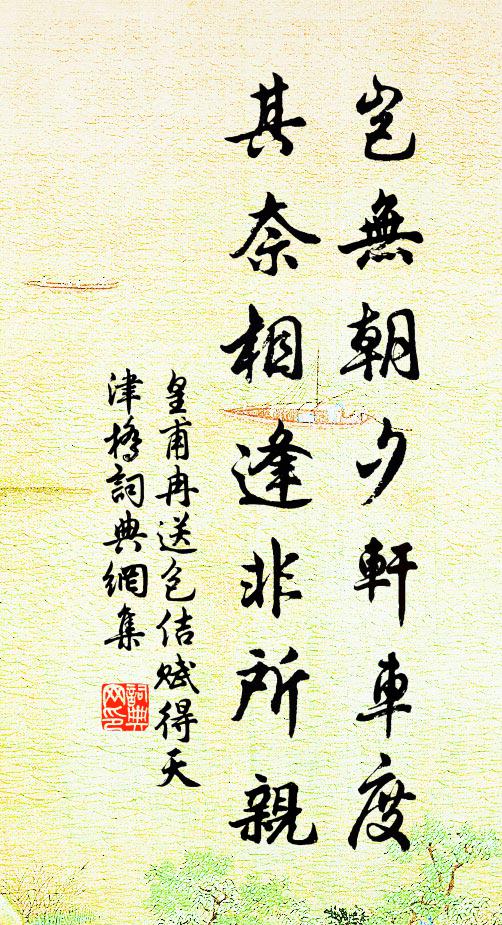 豈無朝夕軒車度
其奈相逢非所親
皇甫冉送包佶賦得天
津橋詞典網集
詞典
网印